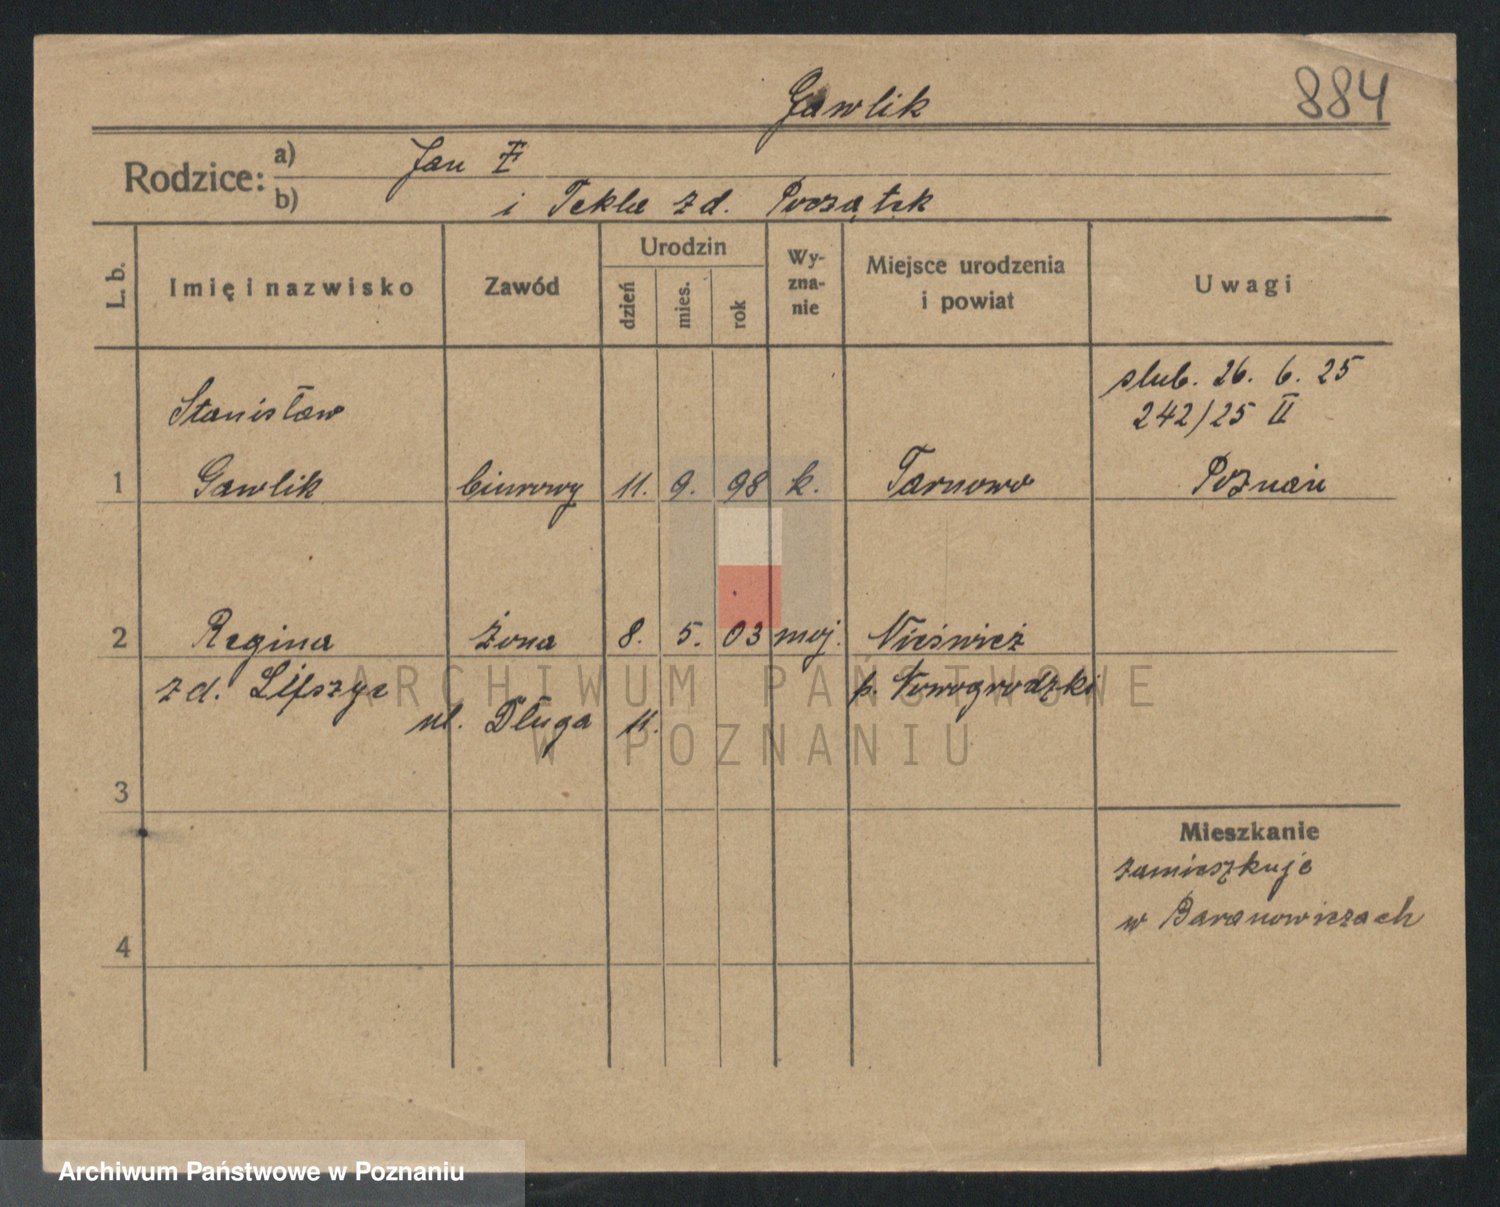 Gawlik 884
Rodzice: a) Jan
b) i Tekla zd. Początek
L. b. Imię i nazwisko Zawód Urodzin dzień mies. rok Wy-zna-nie Miejsce urodzenia i powiat Uwagi
slub. 26. 6. 25
Stanisław 242/25 II
1 Gawlik biurowy 11. 9. 98 k. Tarnowo Poznań
2 Regina żona 8. 5. 03 moj. Nieśwież
zd. Lifszyc p. Nowogrodzki
ul. Długa 11.
ARCHIWUM PAŃSTWOWE
W POZNANIU
3
Mieszkanie
zamieszkuje
w Baranowiczach
4
Archiwum Państwowe w Poznaniu